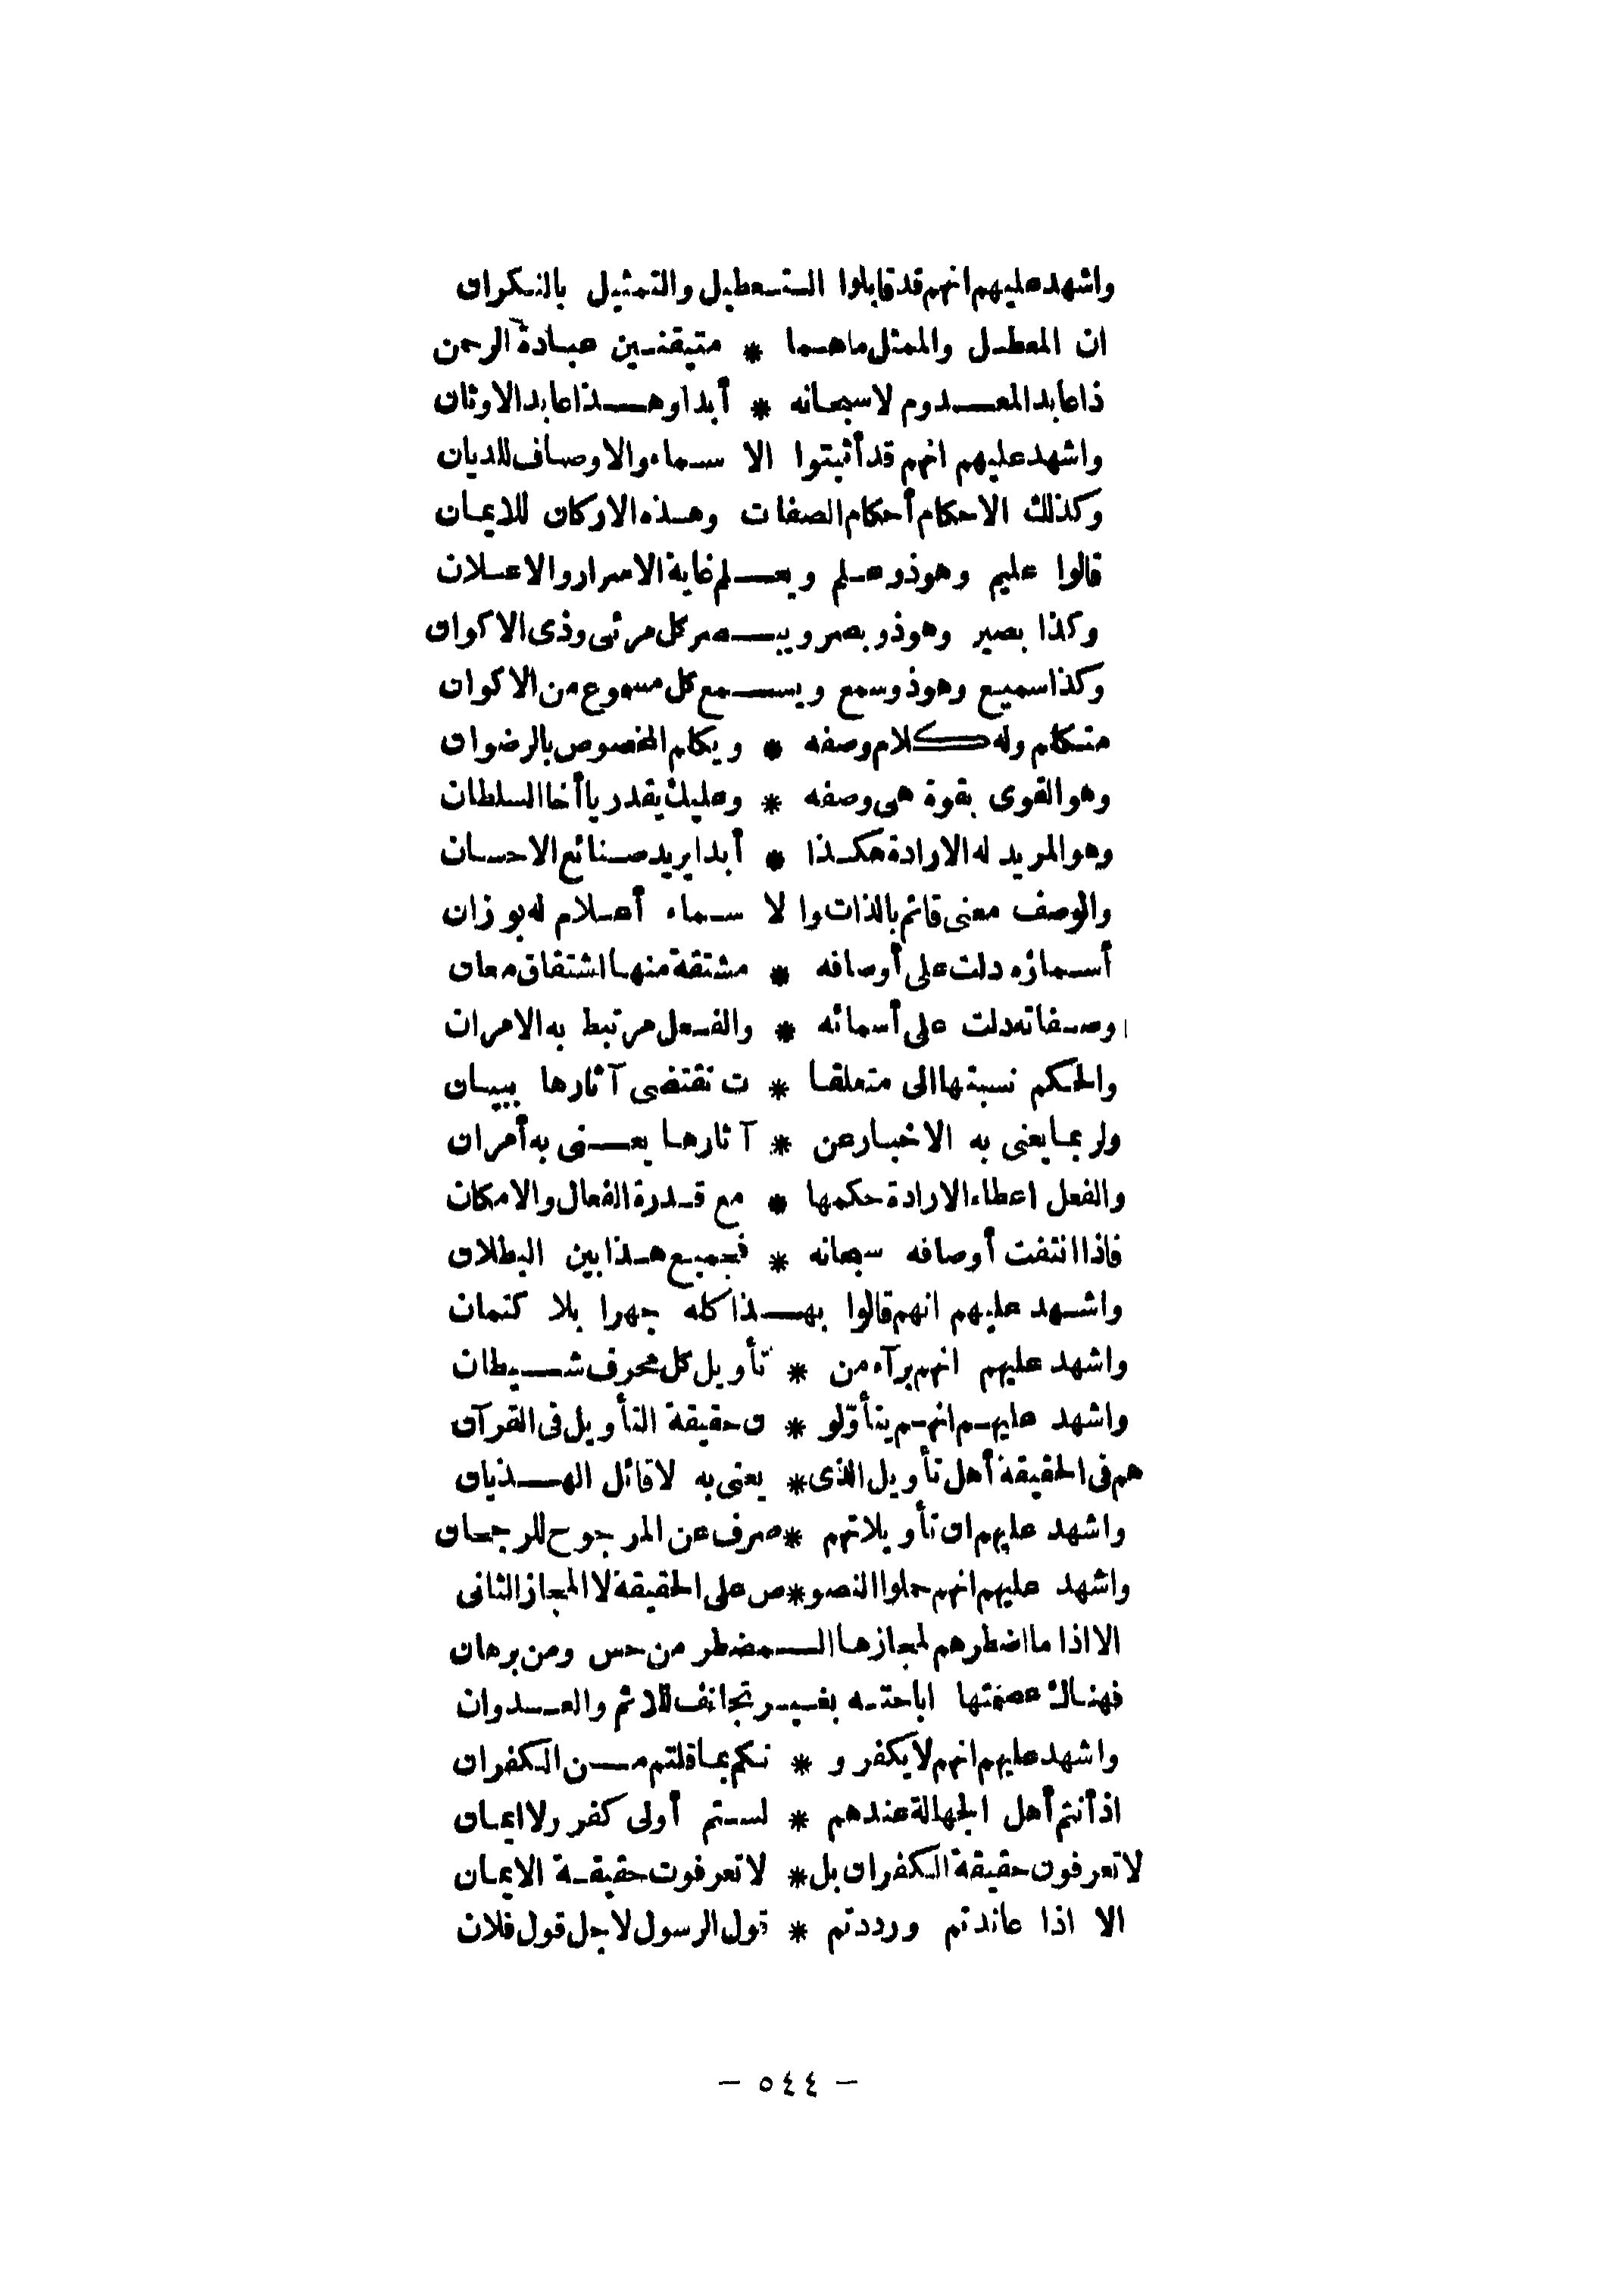 واشهد عليهم انهم قد قابلوا التـعطيل والتمثيل بالنكران
ان المعطل والممثل ماهما * متيقنين عبادة الرحمن
ذا عابد المعدوم لا سبحانه * أبدا وهذا عابد الاوثان
واشهد عليهم انهم قد أثبتوا الا سماء والاوصاف للديان
وكذلك الاحكام أحكام الصفات وهذه الاركان للايمان
قالوا عليم وهو ذو علم ويعلم غاية الاسرار والاعلان
وكذا بصير وهو ذو بصر ويبصر كل مرئى وذى الاكوان
وكذا سميع وهو ذو سمع ويسمع كل مسموع من الاكوان
متكلم وله كلام وصفه * ويكلم المخصوص بالرضوان
وهو القوى بقوة هى وصفه * وعليك يقدر يا أخا السلطان
وهو المريد له الارادة هكذا * أبدا يريد صنائع الاحسان
والوصف معنى قائم بالذات وا لا سماء أعلام له بوزان
أسماؤه دلت على أوصافه * مشتقة منها اشتقاق معان
وصفاته دلت على أسمائه * والفعل مرتبط به الامران
والحكم نسبتها الى متعلقا * ت تقتضى آثارها ببيان
ولربما يعنى به الاخبار عن * آثارها يعنى به أمران
والفعل اعطاء الارادة حكمها * مع قدرة الفعال والامكان
فاذا انتفت أوصافه سبحانه * فجميع هذا بين البطلان
واشهد عليهم انهم قالوا بهذا كله جهرا بلا كتمان
واشهد عليهم انهم برآء من * تأويل كل محرف شيطان
واشهد عليهم انهم يتأولو * ن حقيقة التأويل فى القرآن
هم فى الحقيقة أهل تأويل الذى * يعنى به لا قائل الهذيان
واشهد عليهم ان تأويلاتهم * صرف عن المرجوح للرجحان
واشهد عليهم انهم حملوا النصو * ص على الحقيقة لا المجاز الثانى
الا اذا ما اضطرهم لمجازها المضطر من حس ومن برهان
فهناك عصمتها اباحته بغير تجانف للاثم والعدوان
واشهد عليهم انهم لا يكفرو * نكم بما قلتم من الكفران
اذ أنتم أهل الجهالة عندهم * لستم أولى كفر ولا ايمان
لا تعرفون حقيقة الكفران بل * لا تعرفون حقيقة الايمان
الا اذا عاندتم ورددتم * قول الرسول لاجل قول فلان
– ٥٤٤ –